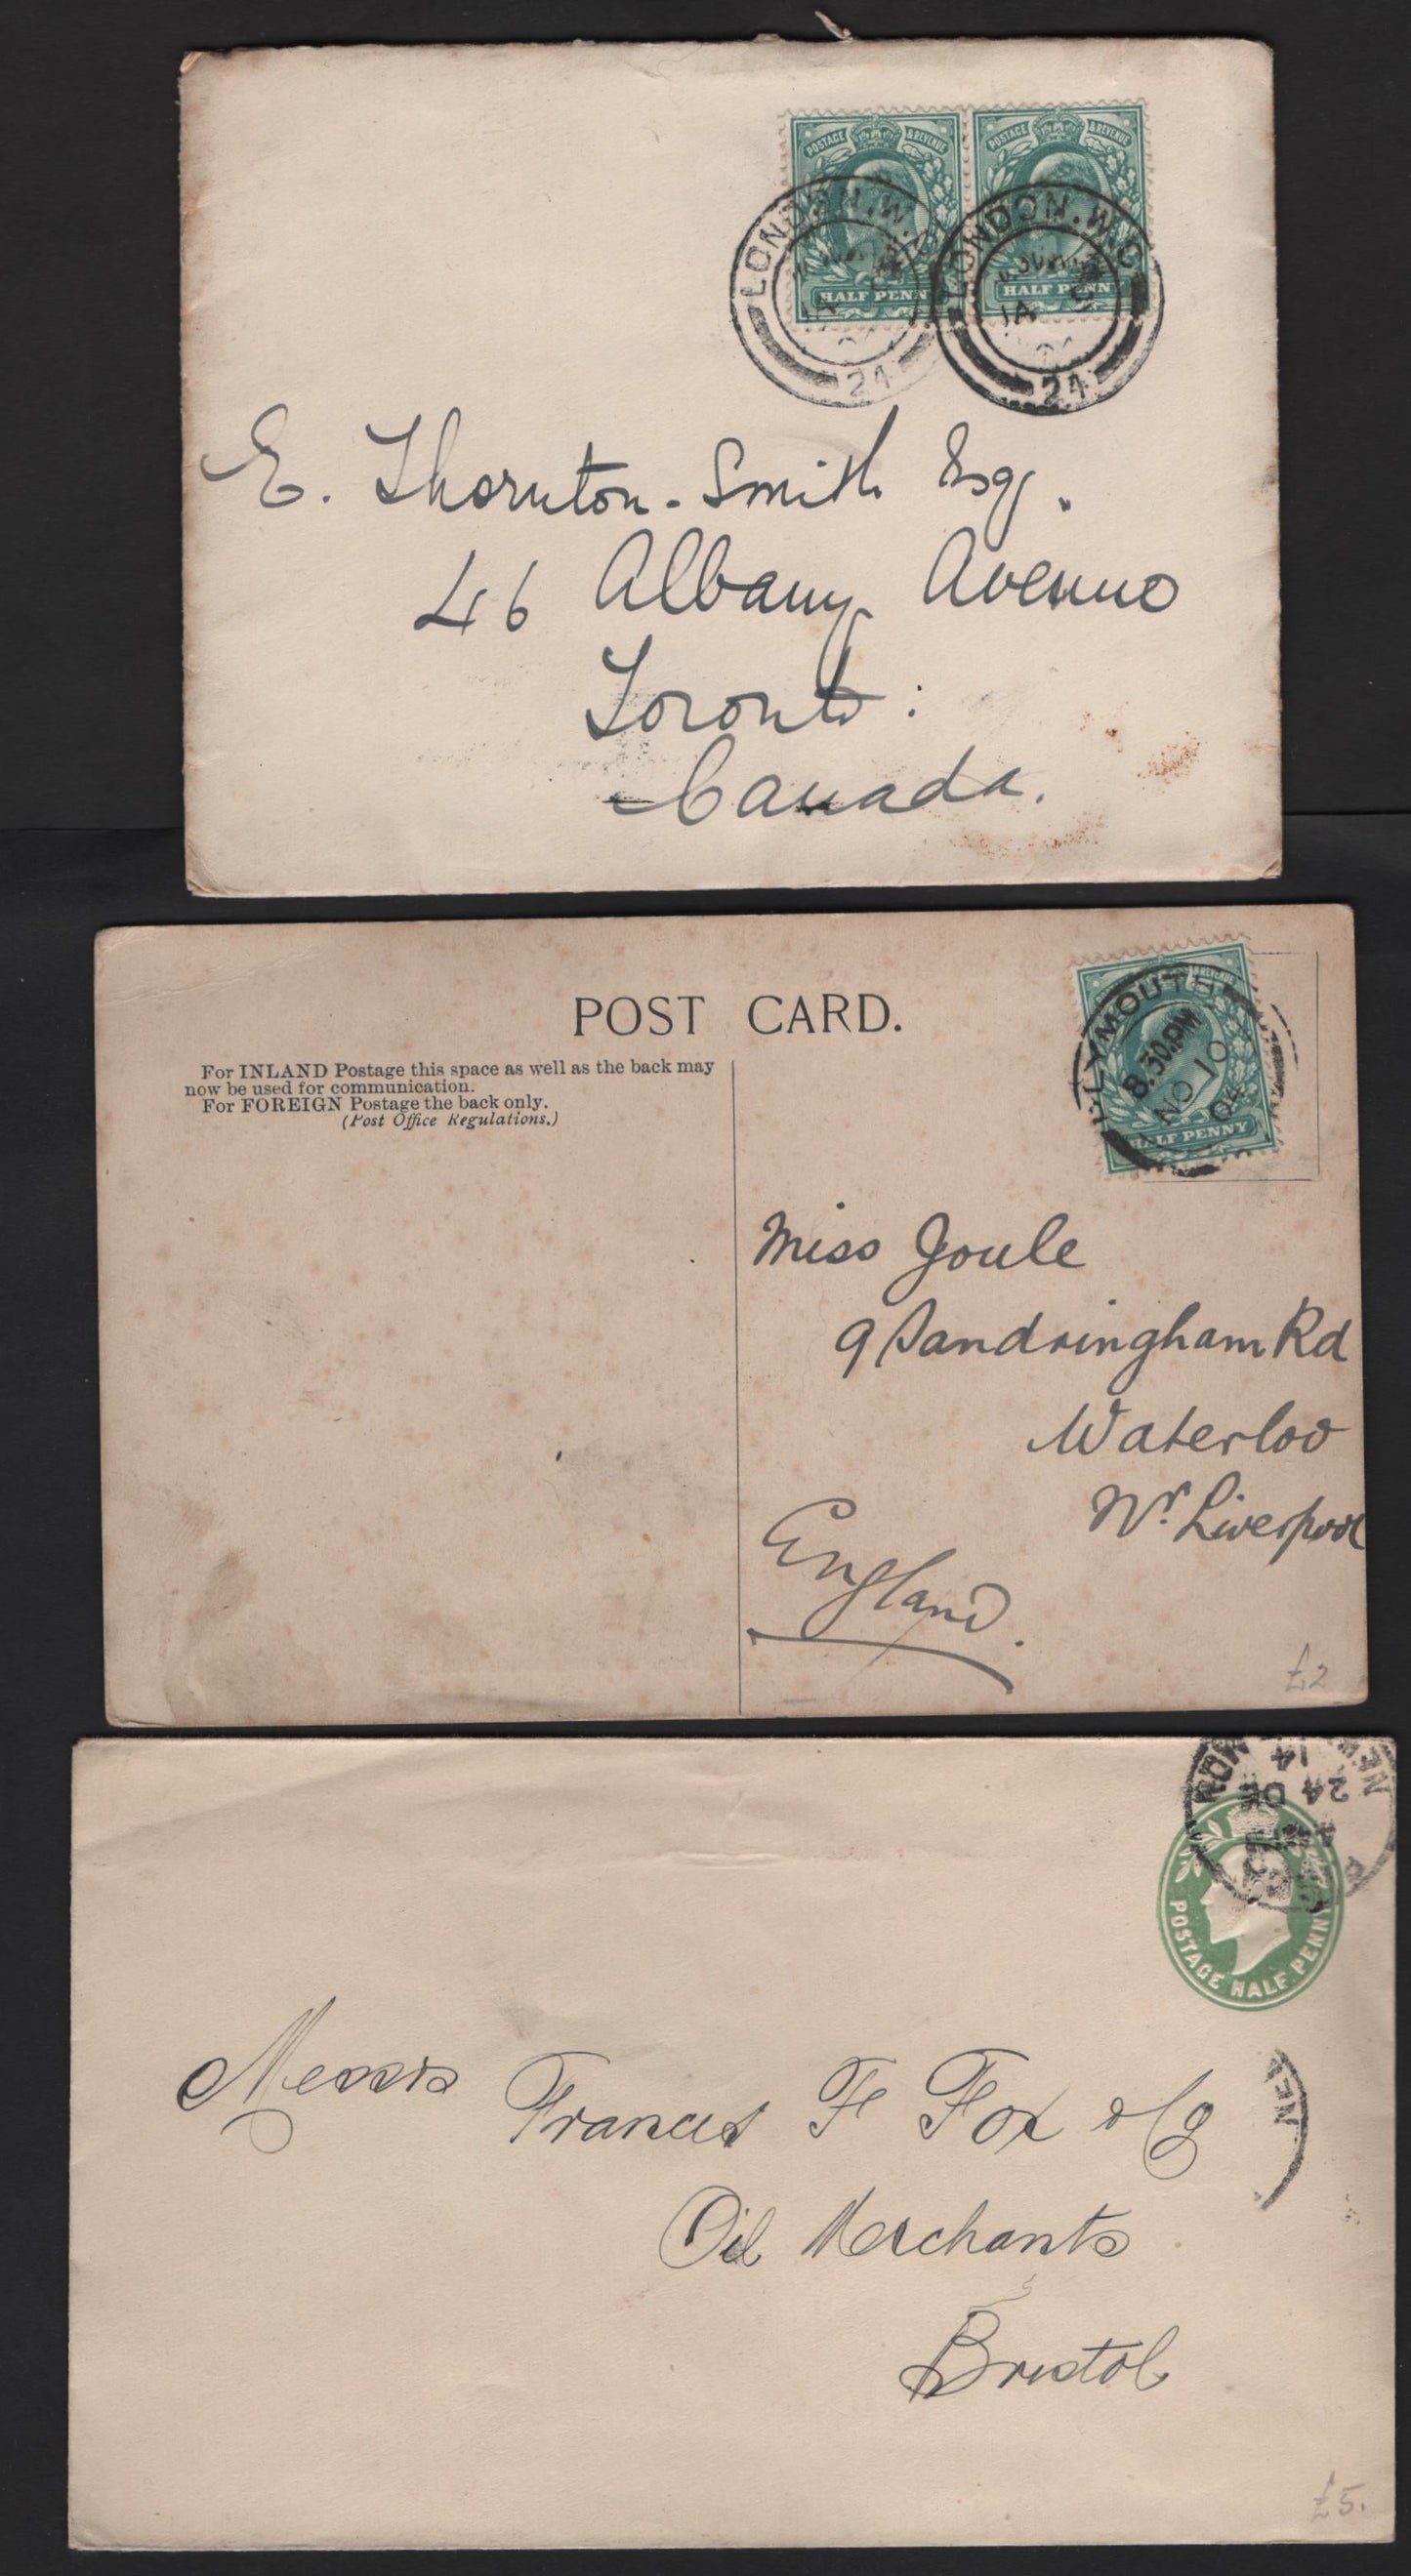 POSTAGE & REVENUE POSTAGE & REVENUE
LONDON. W. LONDON. W.C
HALF PENN HALF PENNY
JA JA
24 24
E. Thornton-Smith Esq.
46 Albany Avenue
Toronto:
Canada.
POST CARD.
For INLAND Postage this space as well as the back may
now be used for communication.
For FOREIGN Postage the back only.
(Post Office Regulations.)
PLYMOUTH
8.30.PM
NO 10
04
HALF PENNY
Miss Joule
9 Sandringham Rd
Waterloo
Nr. Liverpool
England.
£2
14
24 DE
POSTAGE HALF PENNY
NEW
Messrs Francis F Fox & Co
Oil Merchants
Bristol
£5.